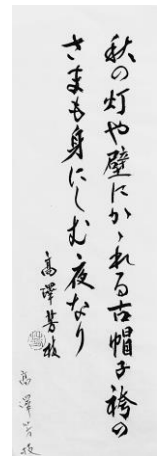 秋の灯や壁にかゝれる古帽子袴の
さまも身にしむ夜なり
高澤芳枝
高澤芳枝